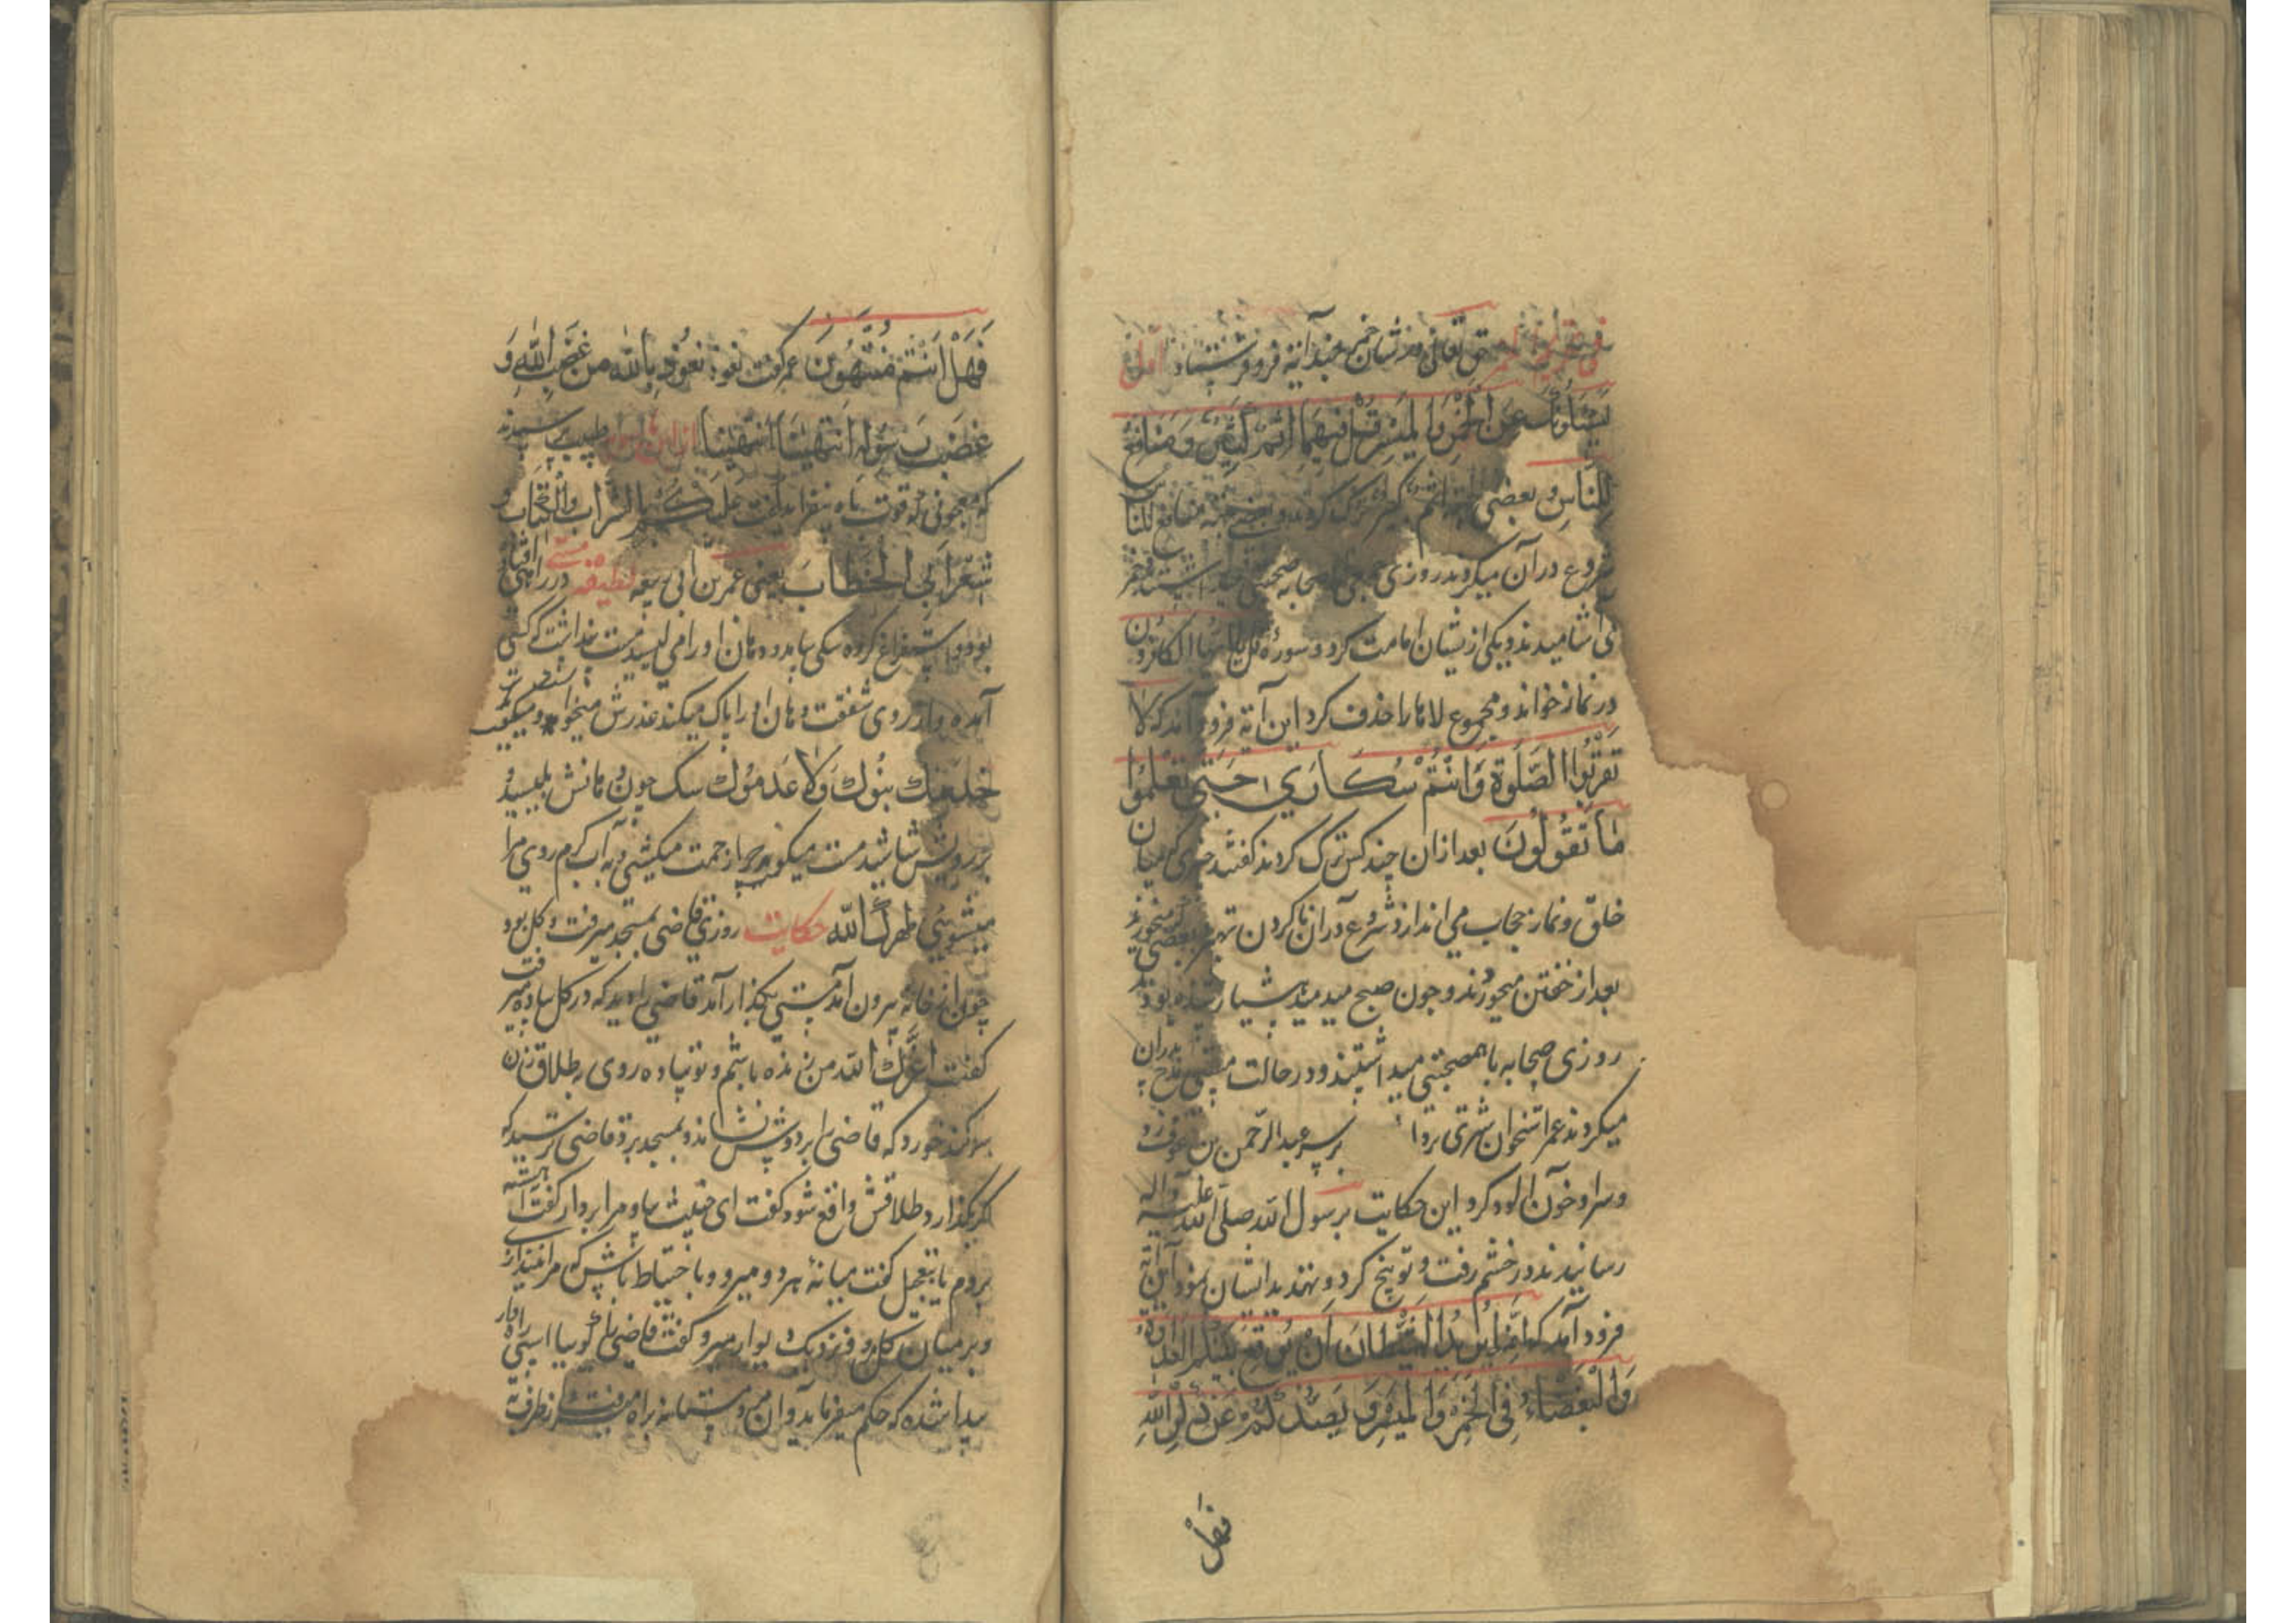 حق تعالی در شان خمر چند آیه فرو فرستاد اول
یَسْئَلُونَكَ عَنِ الْخَمْرِ وَالْمَیْسِرِ قُلْ فِیهِمَا اِثْمٌ كَبِیرٌ وَمَنَافِعُ
لِلنَّاسِ و بعضی اثم کبیر ترک کردند و بعضی منافع للناس
شروع در آن میکردند روزی صحابه
می اشامیدند و یکی از یشان امامت کرد و سورۀ قل یا ایها الکافرون
در نماز خواند و مجموع لاها را حذف کرد این آیة فرود آمد که لا
تَقْرَبُوا الصَّلٰوةَ وَاَنْتُمْ سُكَارٰی حَتّٰی تَعْلَمُوا
مَا تَقُولُونَ بعد ازان چند کس ترک کردند گفتند چیزی که میان
خلق و نماز حجاب می اندازد شروع در ان ناکردن بعضی
بعد از خفتن میخوردند و چون صبح میدمید شیار شده بودند
روزی صحابه با هم صحبتی میداشتند و در حالت مستی قدح بدران
میکردند عمر استخوان شتری بر سر عبد الرحمن بن عوف زد
و سر او خون الود کرد این حکایت برسول الله صلی الله علیه واله
رسانیدند در خشم رفت و توبیخ کرد و تهدید ایشان نمود این آیة
فرود آمد که اِنَّمَا یُرِیدُ الشَّیْطَانُ اَنْ یُوقِعَ بَیْنَكُمُ الْعَدَاوَةَ
وَالْبَغْضَاءَ فِی الْخَمْرِ وَالْمَیْسِرِ وَ یَصُدَّكُمْ عَنْ ذِكْرِ اللهِ
فهل
فَهَلْ اَنْتُمْ مُنْتَهُونَ عمر گفت نعوذ بالله من غضب الله و
غضب رسوله انتهینا انتهینا طبیبی پرسیدند
که معجونی که قوت باه بیفزاید گفت علیکم بالشراب والکباب و
شعر ابی الخطاب یعنی عمر بن ابی ربیعه لطیفه مستی در راه افتاده
بود و استفراغ کرده سکی بیامد و دهان او را می لیسید مست پنداشت که کسی
آمده و از روی شفقت دهان او را پاک میکند عذرش میخواست و میگفت
خدمك بنوك ولا عدموك سک چون دهانش بلیسید
بر رویش شاشید مست میگوید چرا زحمت میکشی و به آب گرم روی مرا
میشویی طهرك الله حکایت روزی قاضی بمسجد میرفت و کل بود
چون از خانه بیرون آمد مستی بکذار آمد قاضی را دید که در کل پیاده میرفت
گفت اعزك الله من زنده باشم و تو پیاده روی بطلاق زن
سوکند خورد که قاضی را بر دوش نشاند و بمسجد برد قاضی ترسید که
اگر بگذارد طلاقش واقع شود گفت ای خبیث بیا و مرا بردار گفت آهسته
بردم یا بتعجیل گفت میانۀ هر دو میرو و با احتیاط باش که مرا نیندازی
و بر میان کل مرو و نزدیک دیوار میرو گفت قاضی بیا
پیدا شده که حکم میفرماید و آن مرد مستانه براه میرفت از طرف